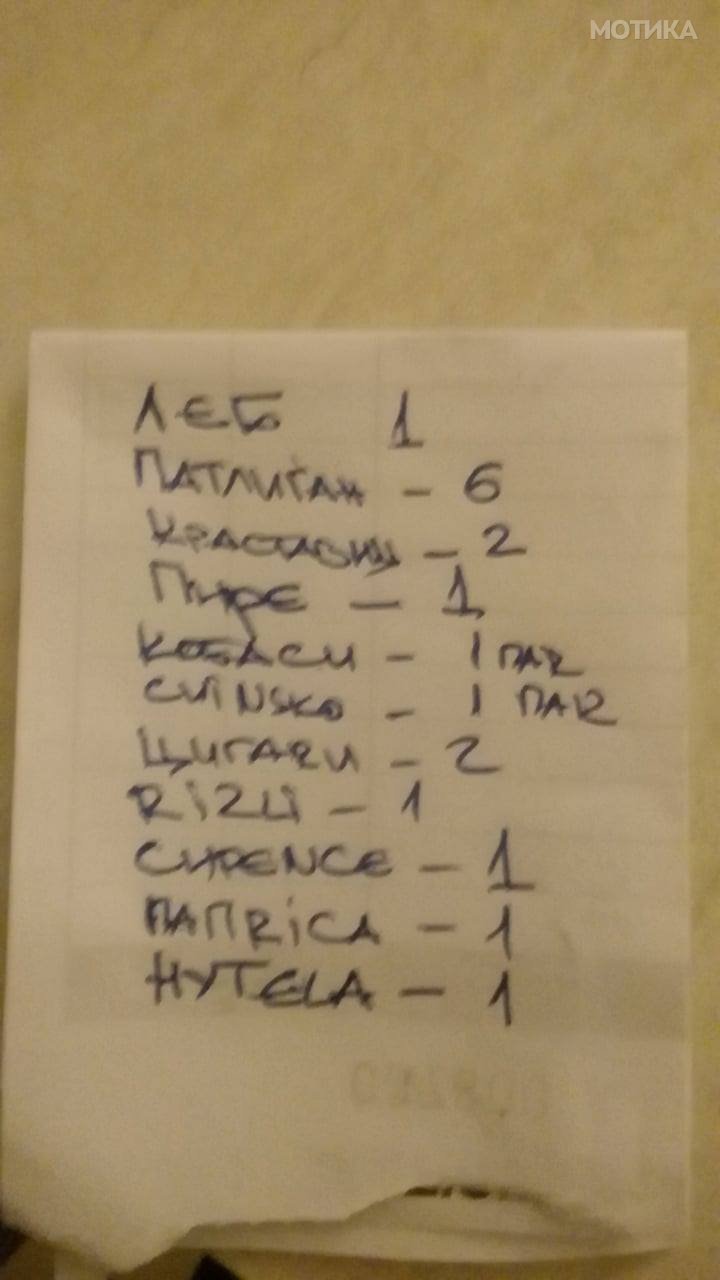 МОТИКА
ЛЕБ 1
ПАТЛИГАН – 6
КРАСТАВИЦ – 2
ПИРЕ – 1
КОБАСИ – 1 ПАR
CVINSKO – 1 ПАR
ЦИГАRИ – 2
RIZLI – 1
СИРЕNCE – 1
ПАПRiCA – 1
НУТЕLA – 1